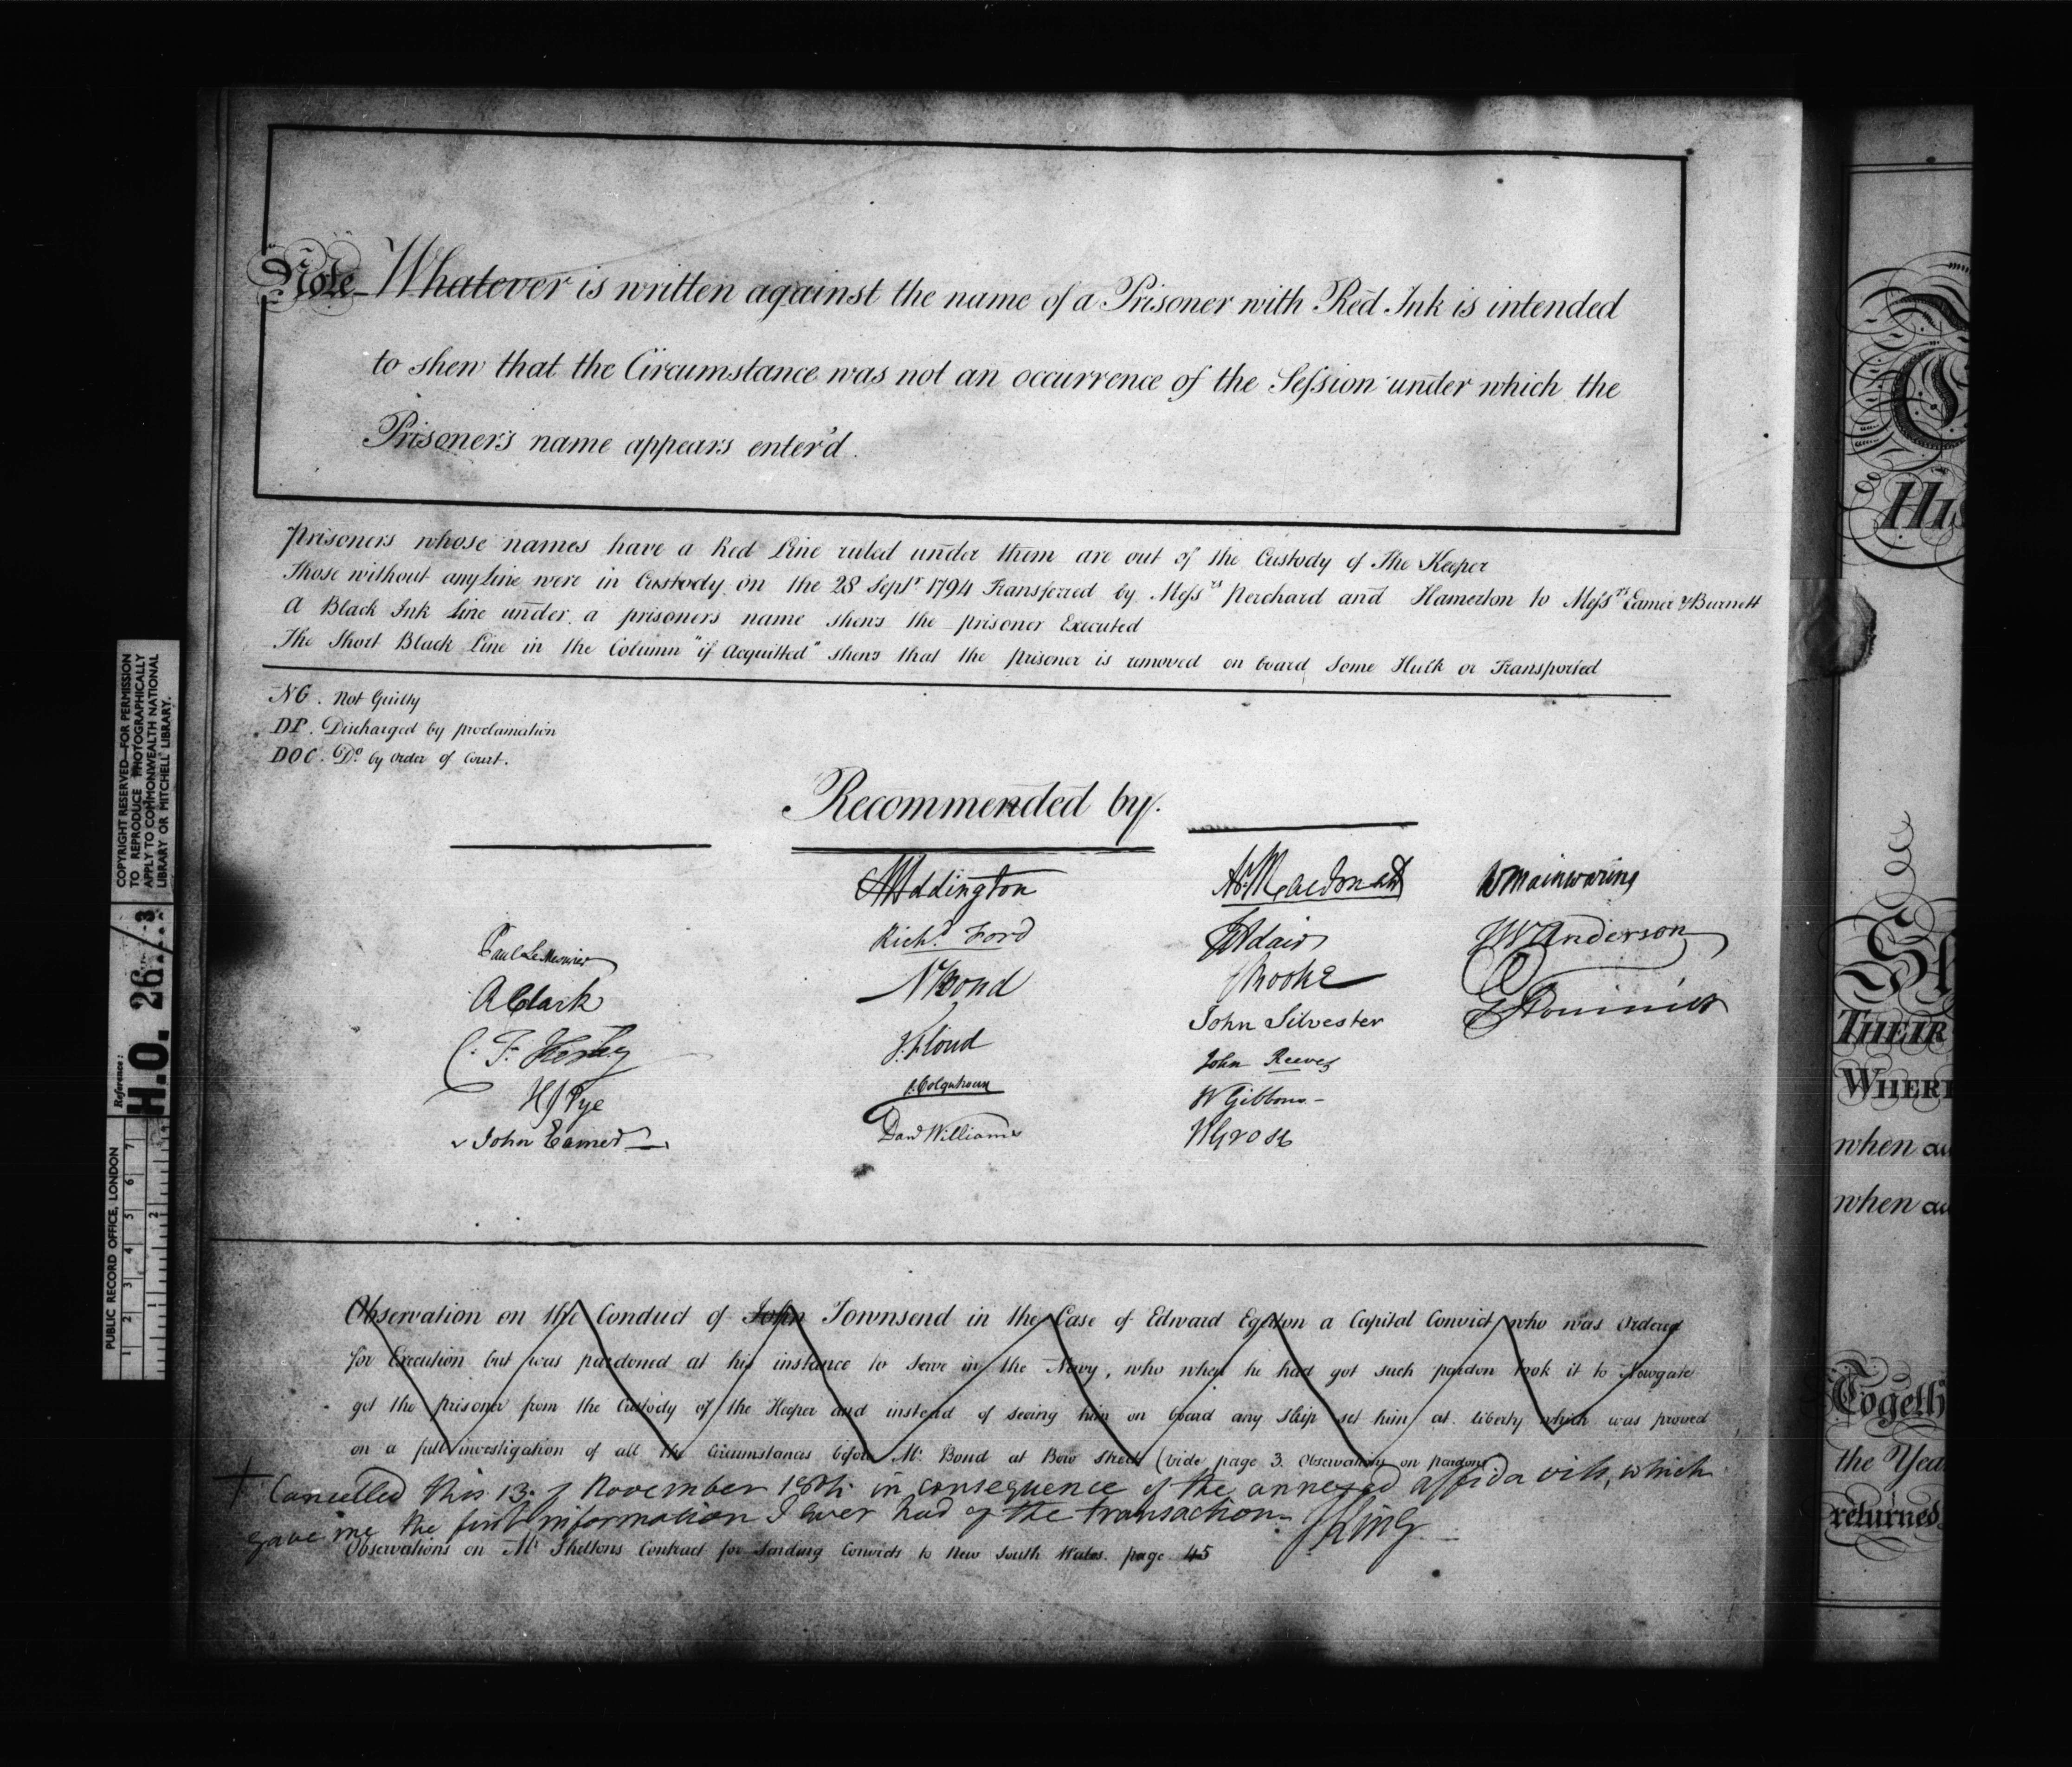 Note Whatever is written against the name of a Prisoner with Red Ink is intended
to shew that the Circumstance was not an occurrence of the Session under which the
Prisoner's name appears enter'd.
Prisoners whose names have a Red Line ruled under them are out of the Custody of The Keeper
Those without any Line were in Custody on the 28 Septr 1794 Transferred by Messrs Perchard and Hamerton to Messrs Eamer & Burnett
A Black Ink Line under a prisoners name shews the prisoner Executed
The Short Black Line in the Column "if Acquitted" shews that the prisoner is removed on board Some Hulk or Transported
NG. Not Guilty
DP. Discharged by proclamation
DOC. Do by order of Court.
Recommended by.
Paul Le Mesurier
A Clark
H J Pye
John Eamer
Addington
Richd Ford
N Bond
J. Floud
P. Colquhoun
Dand Williams
A. Macdonald
J Adair
Brooke
John Silvester
John Reeves
W Gibbons
W Mainwaring
J W Anderson
Observation on the Conduct of John Townsend in the Case of Edward Egerton a Capital Convict, who was Ordered
for Execution but was pardoned at his instance to Serve in the Navy, who when he had got such pardon took it to Newgate
got the prisoner from the Custody of the Keeper and instead of seeing him on board any Ship set him at liberty which was proved
on a full investigation of all the Circumstances before Mr. Bond at Bow Street (vide page 3. Observations on pardons
+ Cancelled this 13 of November in consequence of the annexed affidavits, which
gave me the first information I ever had of the transaction. J King
Observations on Mr Sheltons Contract for Sending Convicts to New South Wales. page 45
COPYRIGHT RESERVED—FOR PERMISSION
TO REPRODUCE PHOTOGRAPHICALLY
APPLY TO COMMONWEALTH NATIONAL
LIBRARY OR MITCHELL LIBRARY.
Reference:
H.O. 26/3
PUBLIC RECORD OFFICE, LONDON
1 2 3 4 5 6 7
1 2
HIS
THEIR
WHERE
when
when
Togeth
the Yea
returned